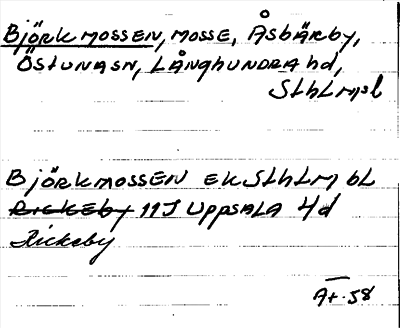 Björkmossen, mosse, Åsbärby,
Östunasn, Långhundra hd,
Sthlms l
Björkmossen ek Sthlm bl
Rickeby 11J Uppsala 4d
Rickeby
At. 58